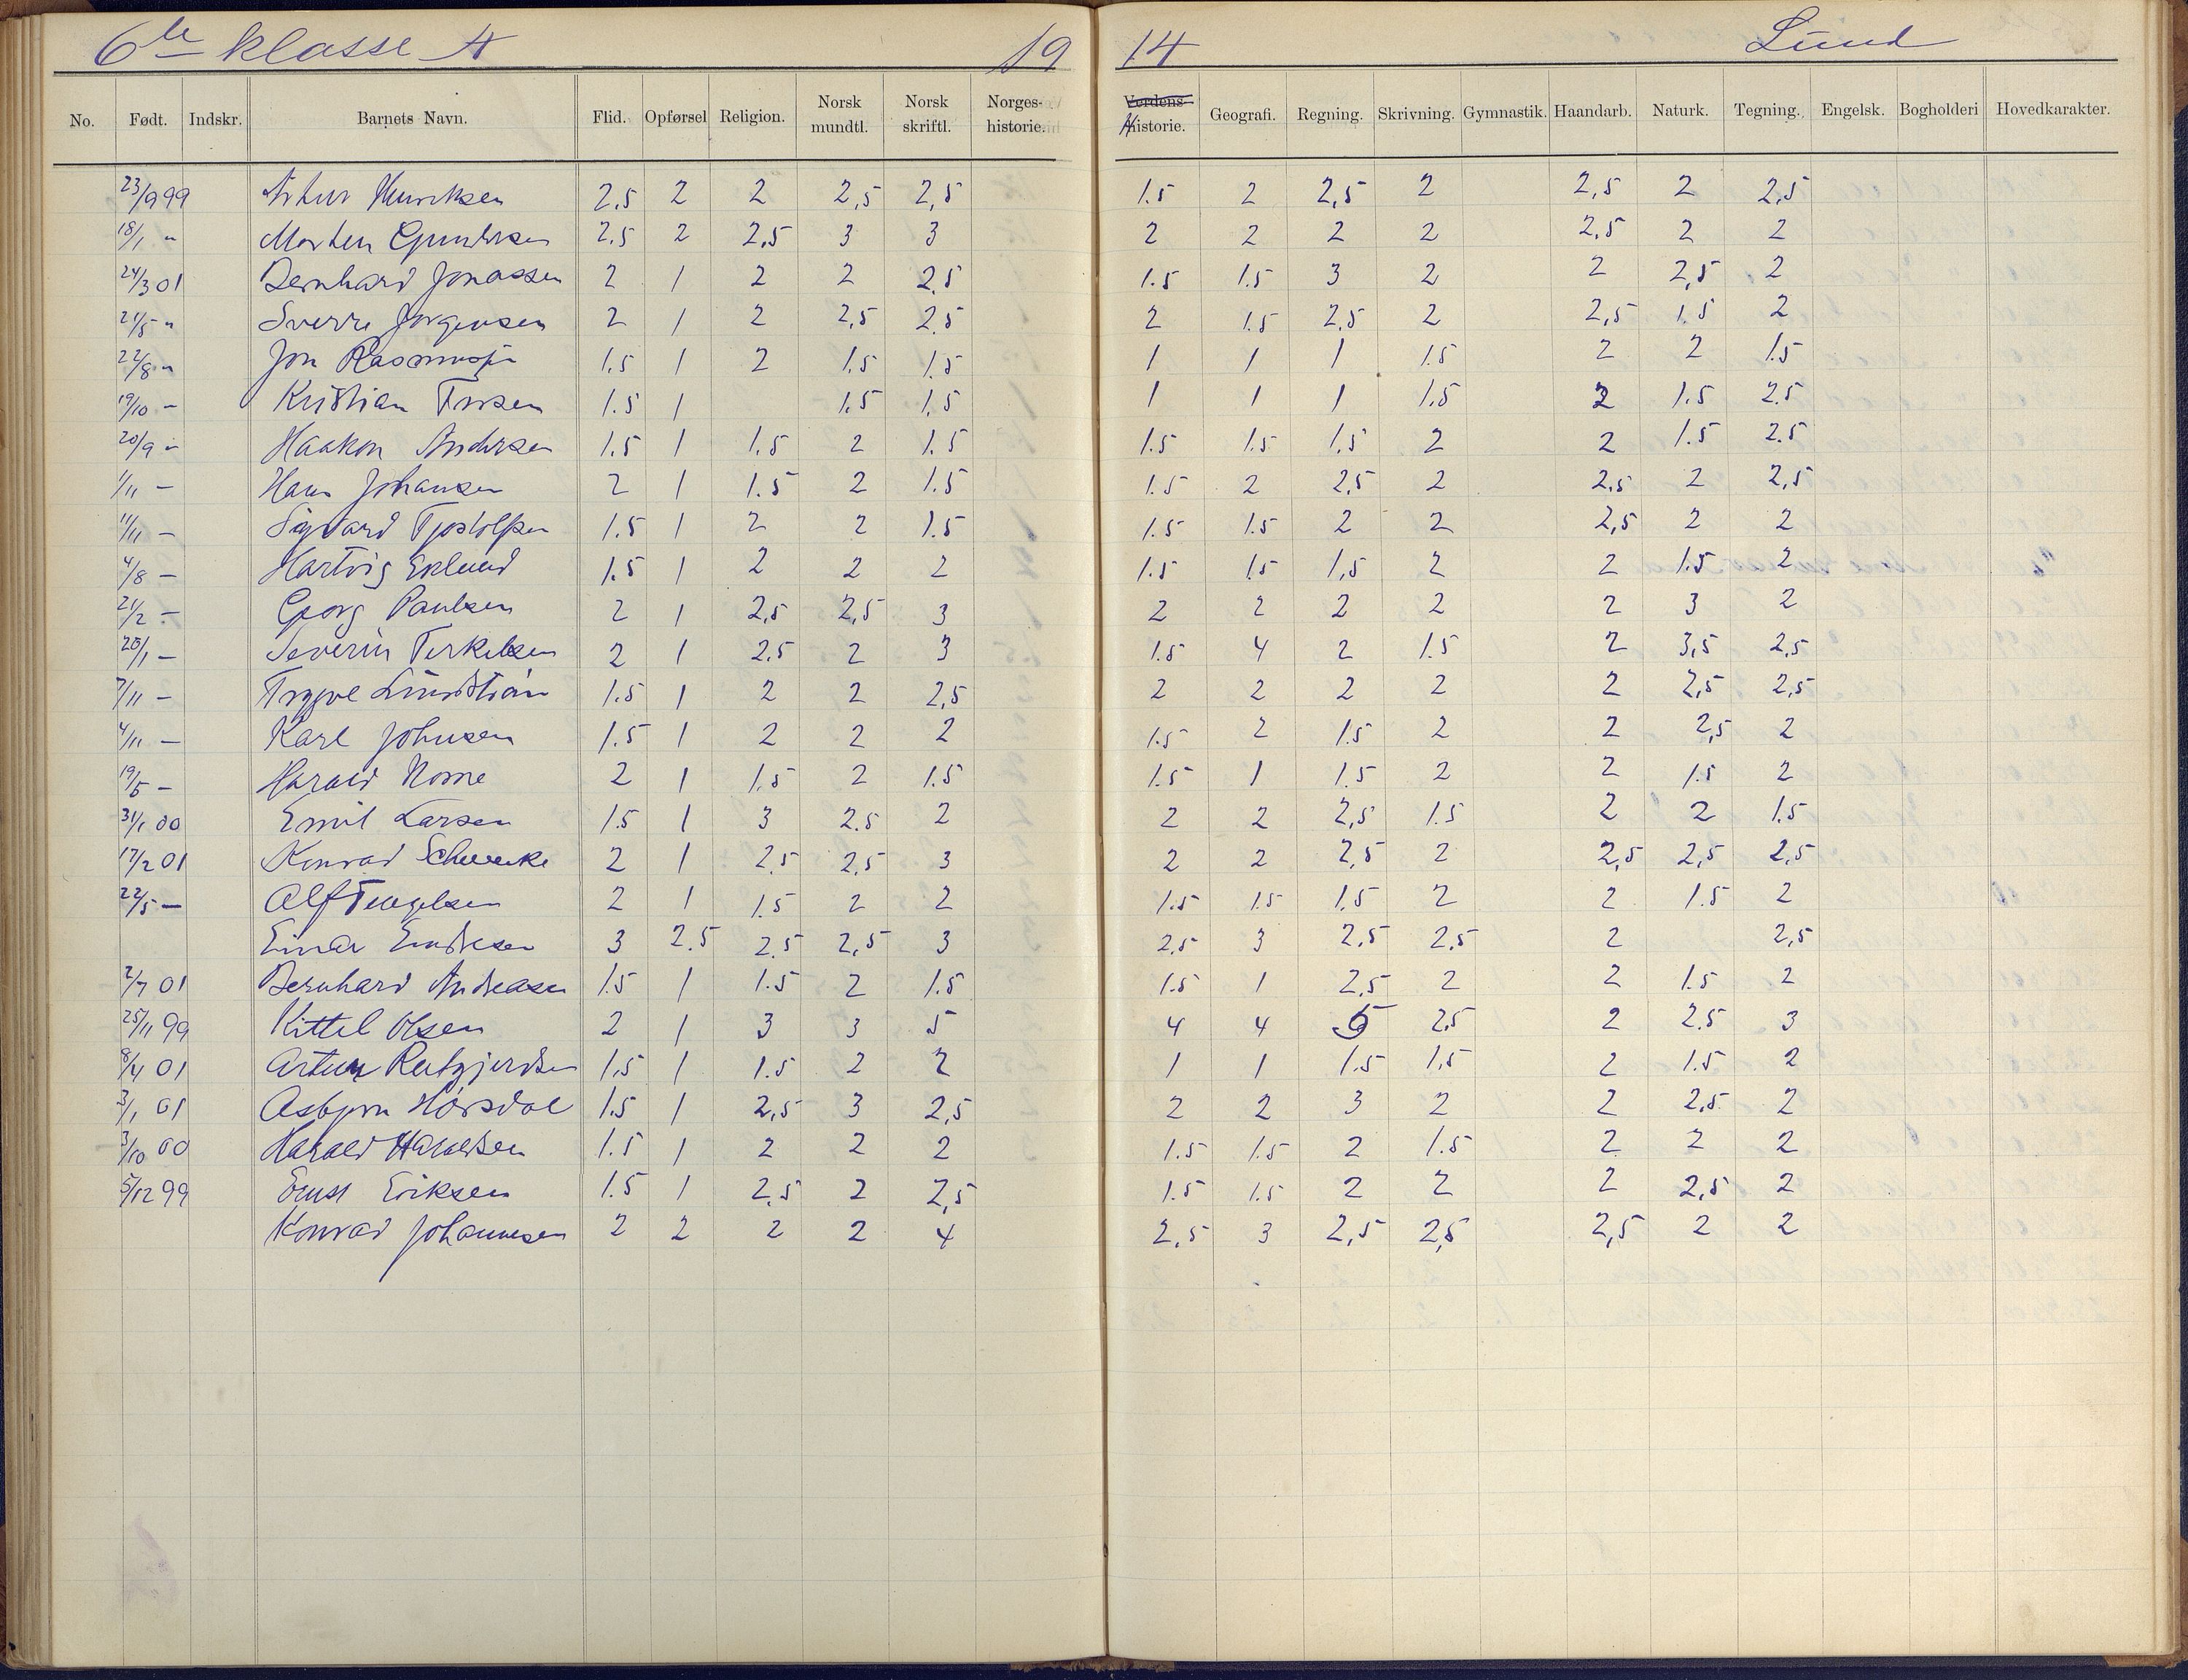 6te klasse A 19 14 Lund
No. Født. Indskr. Barnets Navn. Flid. Opførsel Religion. Norsk mundtl. Norsk skriftl. Norges-historie. Verdens-historie. Geografi. Regning. Skrivning. Gymnastik. Haandarb. Naturk. Tegning. Engelsk. Bogholderi Hovedkarakter.
23/9 99 Artur Henriksen 2.5 2 2 2,5 2,5 1.5 2 2,5 2 2,5 2 2,5
18/1 " Morten Gundersen 2.5 2 2,5 3 3 2 2 2 2 2,5 2 2
24/3 01 Bernhard Jonassen 2 1 2 2 2.5 1.5 1.5 3 2 2 2,5 2
21/5 " Sverre Jørgensen 2 1 2 2,5 2.5 2 1.5 2,5 2 2,5 1.5 2
22/8 " Jon 1.5 1 2 1,5 1.5 1 1 1 1.5 2 2 1.5
19/10 - Kristian 1.5 1 1,5 1,5 1 1 1 1,5 2 1.5 2.5
20/9 - Haakon Andersen 1.5 1 1,5 2 1.5 1.5 1.5 1,5 2 2 1.5 2.5
1/11 - Hans Johansen 2 1 1.5 2 1.5 1.5 2 2,5 2 2,5 2 2,5
11/11 - Sigvard Tjostolfsen 1.5 1 2 2 1.5 1.5 1.5 2 2 2,5 2 2
4/8 - Hartvig Eklund 1.5 1 2 2 2 1.5 1.5 1,5 2 2 1.5 2
21/2 - Georg Paulsen 2 1 2,5 2,5 3 2 2 2 2 2 3 2
25/1 - Severin Terkelsen 2 1 2.5 2 3 1.5 4 2 1.5 2 3,5 2,5
7/11 - Trygve 1.5 1 2 2 2,5 2 2 2 2 2 2,5 2,5
4/11 - Karl Johnsen 1.5 1 2 2 2 1.5 2 1.5 2 2 2,5 2
19/5 - Harald Nome 2 1 1,5 2 1.5 1.5 1 1.5 2 2 1.5 2
31/1 00 Emil Larsen 1.5 1 3 2.5 2 2 2 2,5 1.5 2 2 1.5
17/2 01 Konrad Schwencke 2 1 2,5 2,5 3 2 2 2,5 2 2,5 2,5 2,5
22/5 - Alf Tengelsen 2 1 1.5 2 2 1.5 1.5 1.5 2 2 1.5 2
Einar Endresen 3 2.5 2.5 2,5 3 2,5 3 2,5 2,5 2 2,5
2/7 01 Bernhard Andreasen 1.5 1 1.5 2 1.5 1.5 1 2,5 2 2 1.5 2
25/11 99 Kittel Olsen 2 1 3 3 5 4 4 5 2,5 2 2.5 3
8/4 01 Artur 1,5 1 1.5 2 2 1 1 1.5 1,5 2 1.5 2
3/1 01 Asbjørn Hørsdal 1.5 1 2,5 3 2,5 2 2 3 2 2 2,5 2
3/10 00 Harald Haraldsen 1.5 1 2 2 2 1.5 1.5 2 1.5 2 2 2
5/12 99 Ernst Eriksen 1.5 1 2,5 2 2,5 1.5 1.5 2 2 2 2,5 2
Konrad Johannesen 2 2 2 2 4 2,5 3 2,5 2,5 2,5 2 2